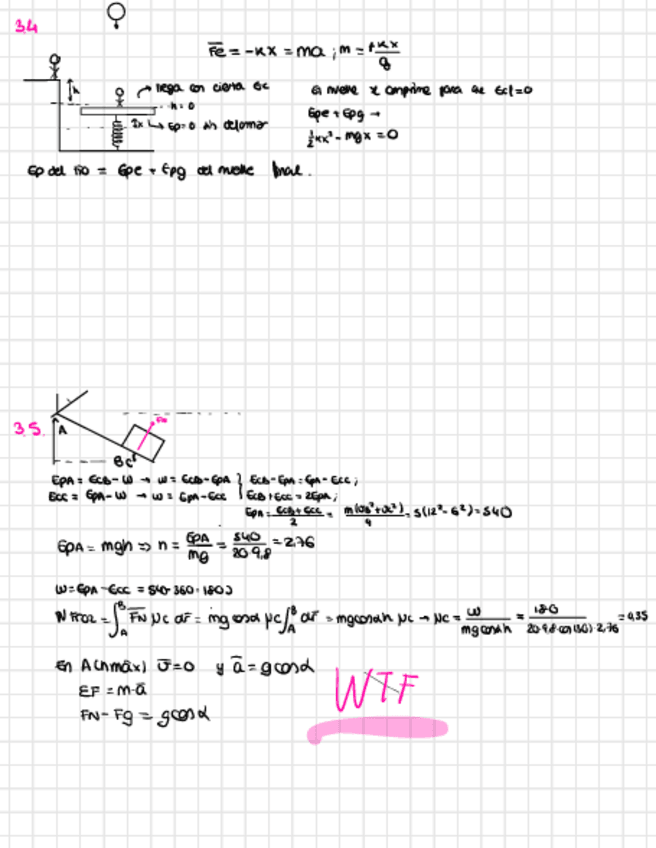 3.4
Fe = -kx = ma ; m = +kx/g
h
llega con cierta Ec
h=0
Ep=0
El muelle se comprime para que Ecf=0
Epe + Epg →
½kx² - mgx = 0
Ep del = Epe + Epg del muelle final.
3.5.
A
Fn
B C
EPA = ECB - W → W = ECB - EPA } ECB - EPA = EPA - ECC ;
ECC = EPA - W → W = EPA - ECC } ECB + ECC = 2EPA ;
EPA = (ECB + ECC)/2 = = 5(12² - 6²) = 540
EPA = mgh => h = EPA/mg = 540/20·9,8 = 2,76
W = EPA - ECC = 540 - 360 = 180J
W FROZ = ∫_A^B FN μc dr = mg cosα μc ∫_A^B dr = mg cosα h μc → μc = W/(mg cosα h) = 180/(20·9,8·cos(30)·2,76) = 0,35
En A (hmáx) v=0 y a = g cosα
ΣF = m·a
FN - Fg = g cosα
WTF